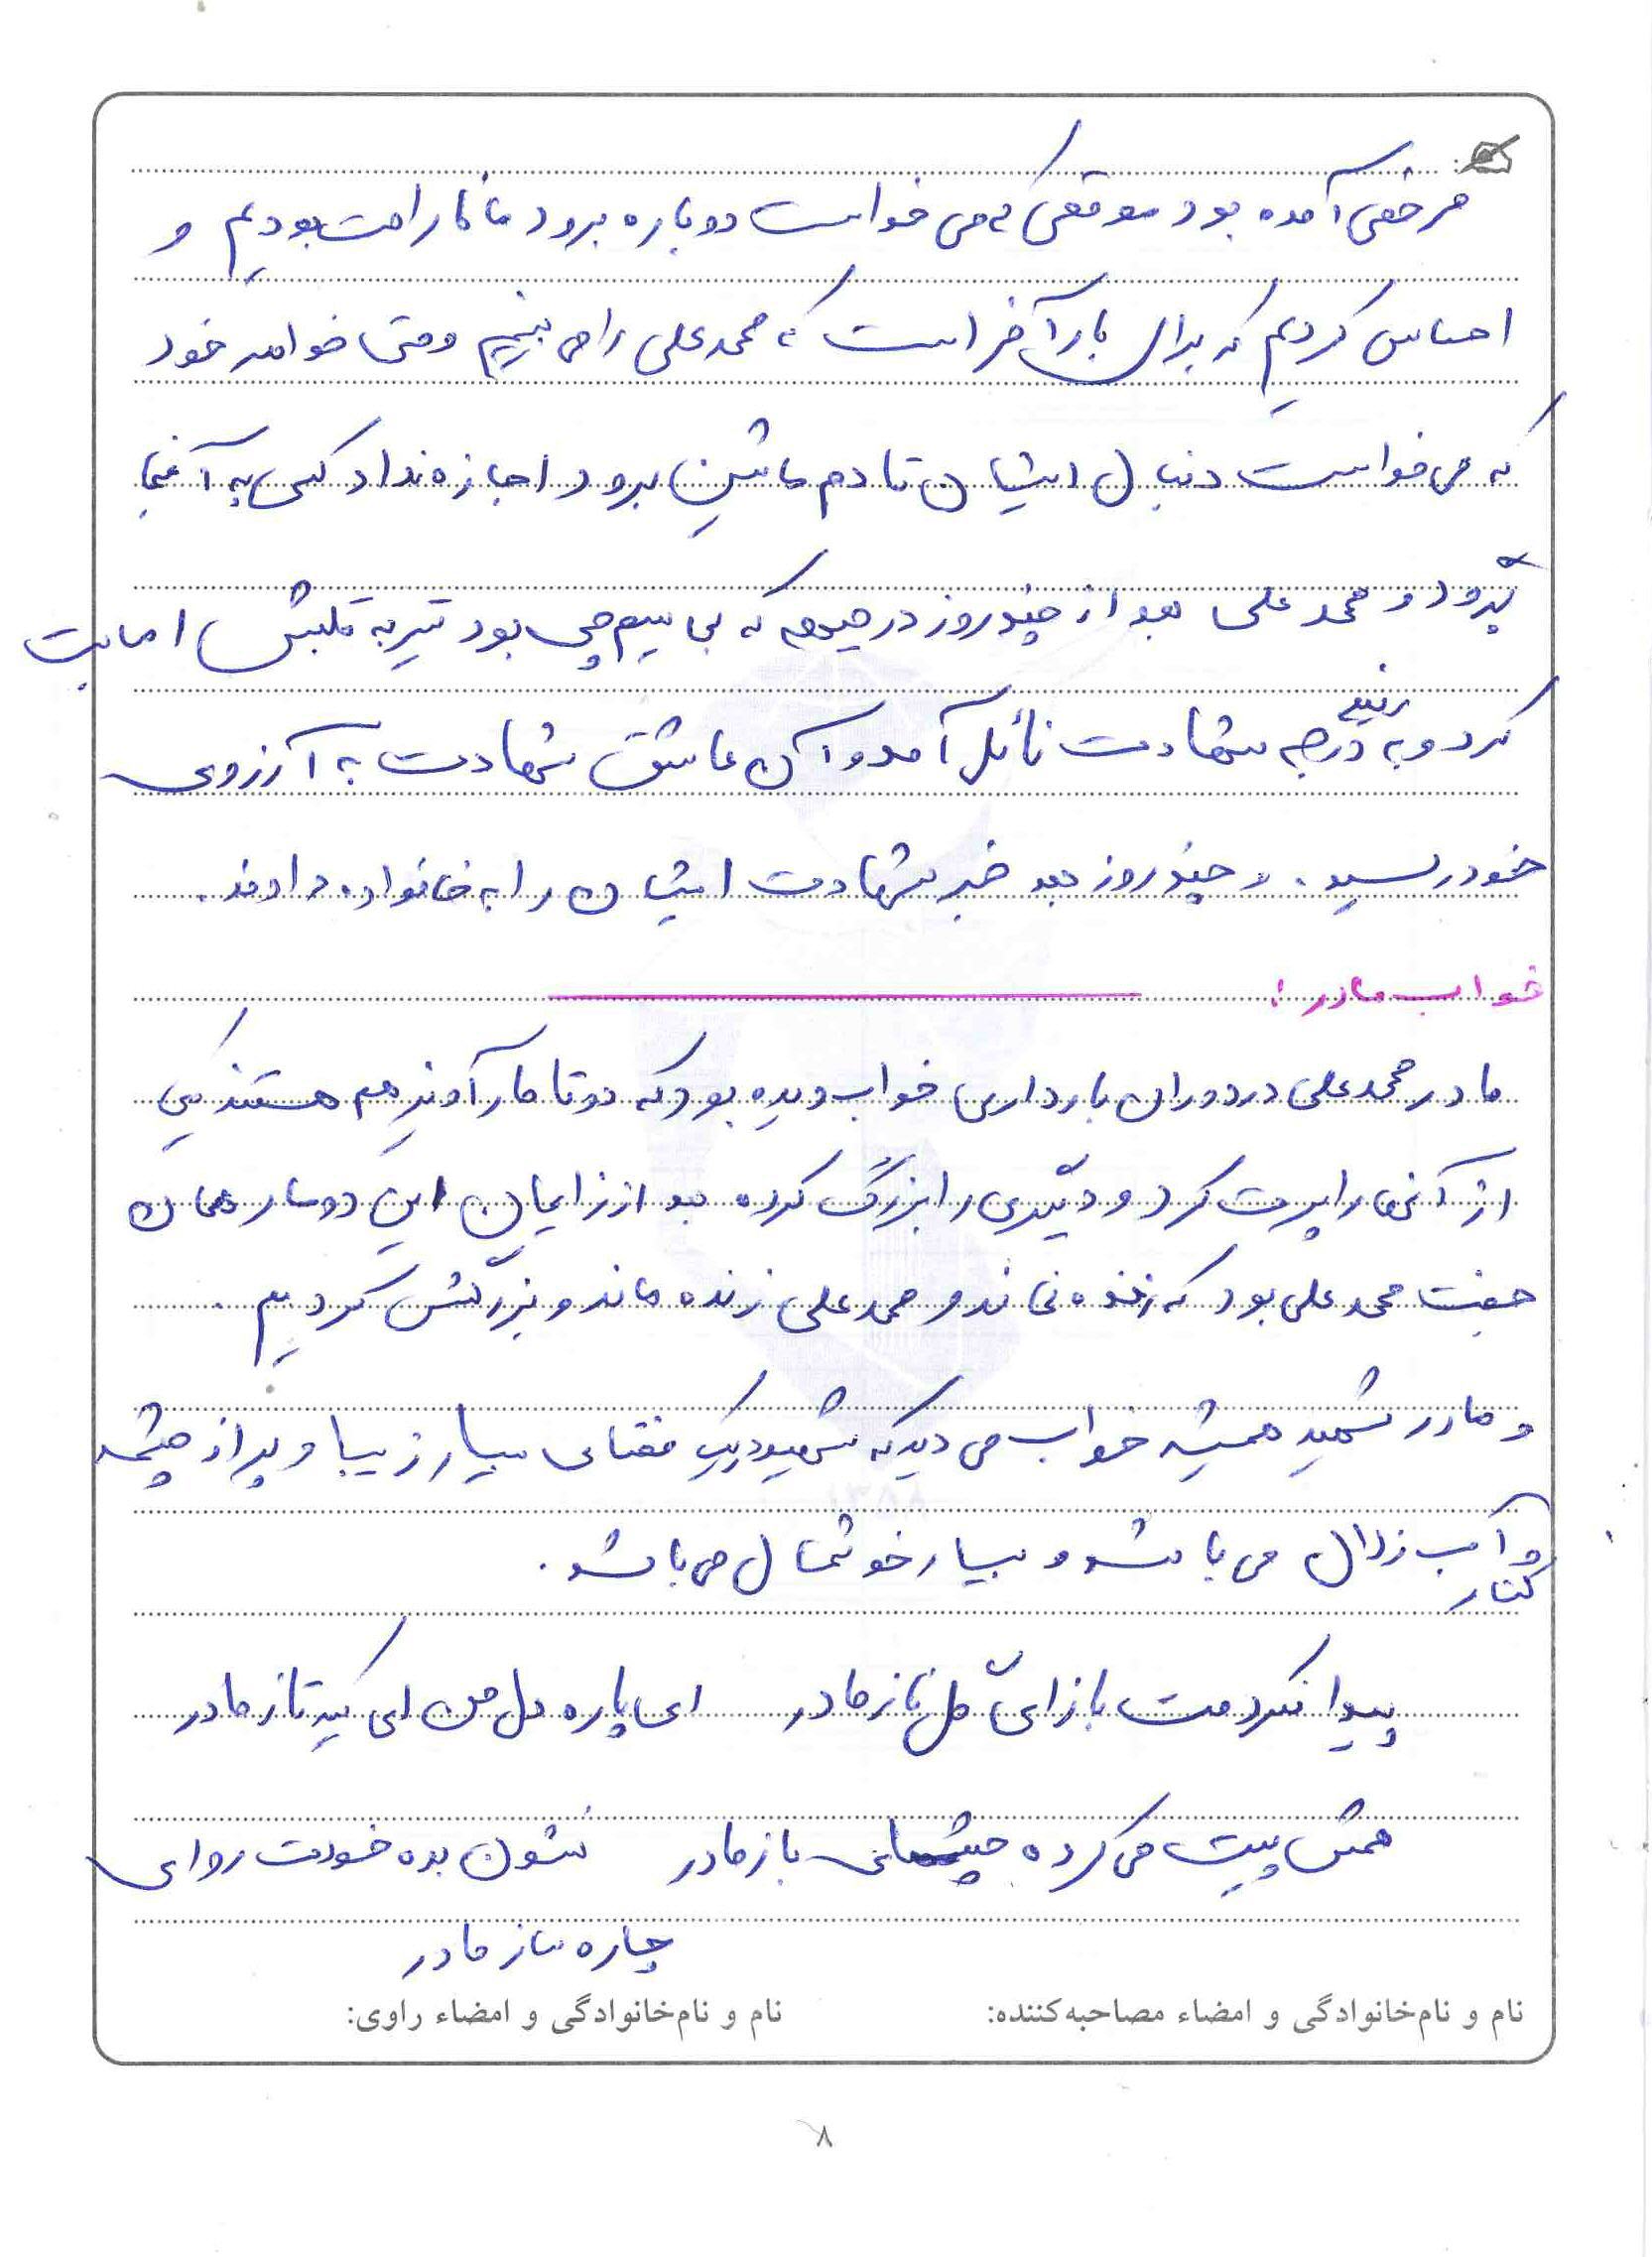 مرخصی آمده بود موقعی که می خواست دوباره برود ما ناراحت بودیم و
احساس کردیم که برای بار آخر است که محمد علی را می بینیم و حتی خواهر خود
که می خواست دنبال ایشان تا دم ماشین برود اجازه نداد کسی به آنجا
برود و محمد علی بعد از چند روز در جبهه که بی سیم چی بود تیر به قلبش اصابت
کرد و به درجه رفیع شهادت نائل آمد و آن عاشق شهادت به آرزوی
خود رسید. و چند روز بعد خبر شهادت ایشان را به خانواده دادند.
خواب مادر:
مادر محمد علی در دوران بارداری خواب دیده بود که دو تا مار آویز هم هستند یکی
از آنها را پرت کرد و دیگری را بزرگ کرده بعد از زایمان این دو مار همان
جفت محمد علی بود که زنده نماند و محمد علی زنده ماند و بزرگش کردیم.
و مادر شهید همیشه خواب می دید که شهید در یک فضای بسیار زیبا و پر از چشمه
و کنار آب زلال می باشد و بسیار خوشحال می باشد.
پیدا نکردمت باز ای گل ناز مادر ای پاره دل من ای یکه تاز مادر
همش پیت می گرده چشمای باز مادر نشون بده خودت رو ای
چاره ساز مادر
نام و نام‌خانوادگی و امضاء مصاحبه‌کننده: نام و نام‌خانوادگی و امضاء راوی:
۸